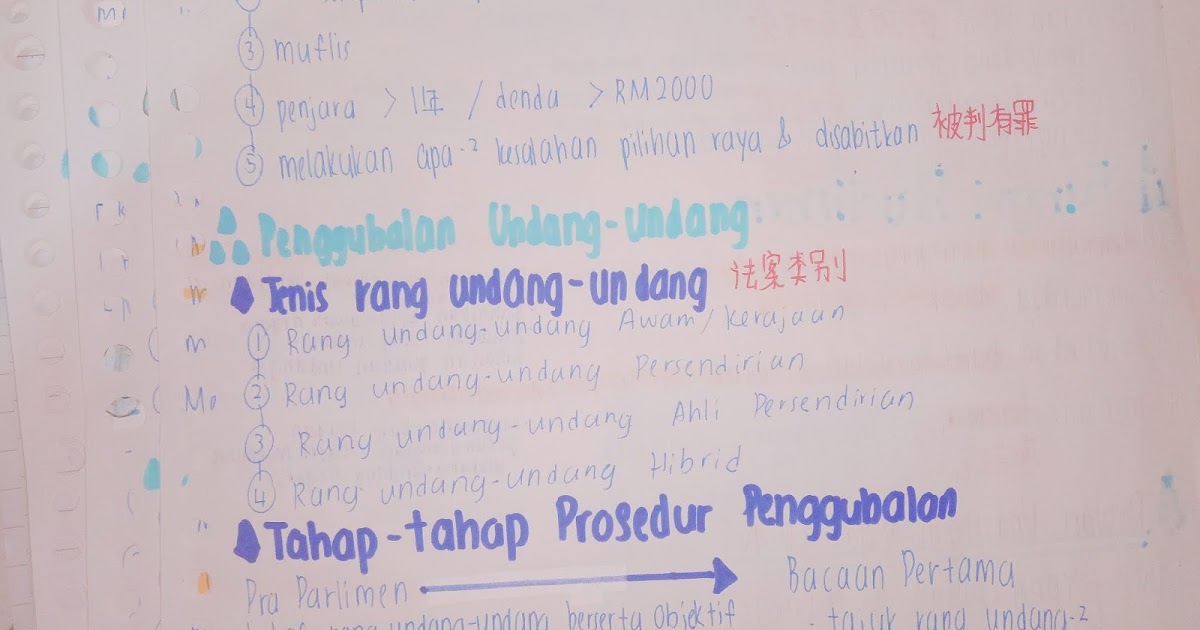 ③ muflis
④ penjara > 1年 / denda > RM2000
⑤ melakukan apa-² kesalahan pilihan raya & disabitkan 被判有罪
Penggubalan Undang-undang
Jenis rang undang-undang 法案类别
① Rang undang-undang Awam/kerajaan
② Rang undang-undang Persendirian
③ Rang undang-undang Ahli Persendirian
④ Rang undang-undang Hibrid
Tahap-tahap Prosedur Penggubalan
Pra Parlimen → Bacaan Pertama
rang undang-undang berserta Objektif
- tajuk rang undang-²